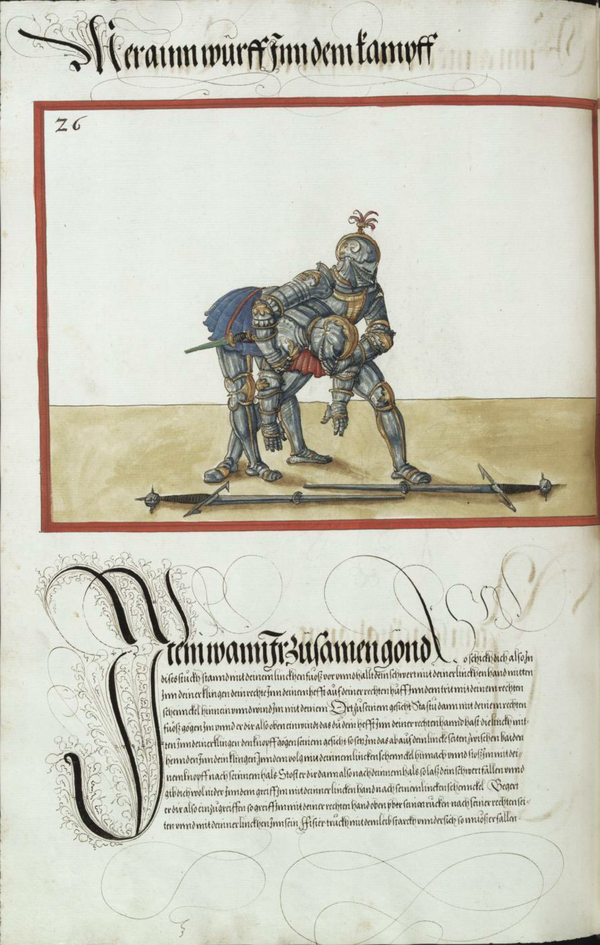 Mer ain wurff Jnn dem kampff
26
Jtem wann Jr zusamen gond So schickh dich also Jn
dises stuckh stannd mit deinem linckhen fuoß vor vnnd halt dein schwert mit deiner linckhen hand mitten
Jnn deiner klingen dein rechte Jnn deinem hefft auf deiner rechten huff Jnn dem trit mit deinem rechten
schennckel hinnach vnnd wind Jm mit deinem Ort zu seinem gesicht Stastu dann mit deinem rechten
fuoß gogen Jm vnnd er dir also oben einwindt das du dein hefft Jnn deiner rechten hannd hast die linckh mit-
ten Jnn deiner klingen den knopff gogen seinem gesicht so setz Jm das ab auf dein lincke seiten zwischen baiden
henden Jnn dem klingen Jnn dem volg mit deinem linckhen schennckel hinnach vnnd stoß Jm mit dei-
nem knopff nach seinem hals Stosst er dir dann also nach deinem hals so laß dein schwert fallen vnnd
gib dich wol nider Jnn dem greiff Jm mit deiner lincken hand nach seinem lincken schennckel Begert
er dir also einzugreiffen so greiff Jm mit deiner rechten hand oben yber seinen rucken nach seiner rechten sei-
ten vnnd mit deiner linckhen Jnn sein truckh mit dem leib starckh vnndersich so muoß er fallen